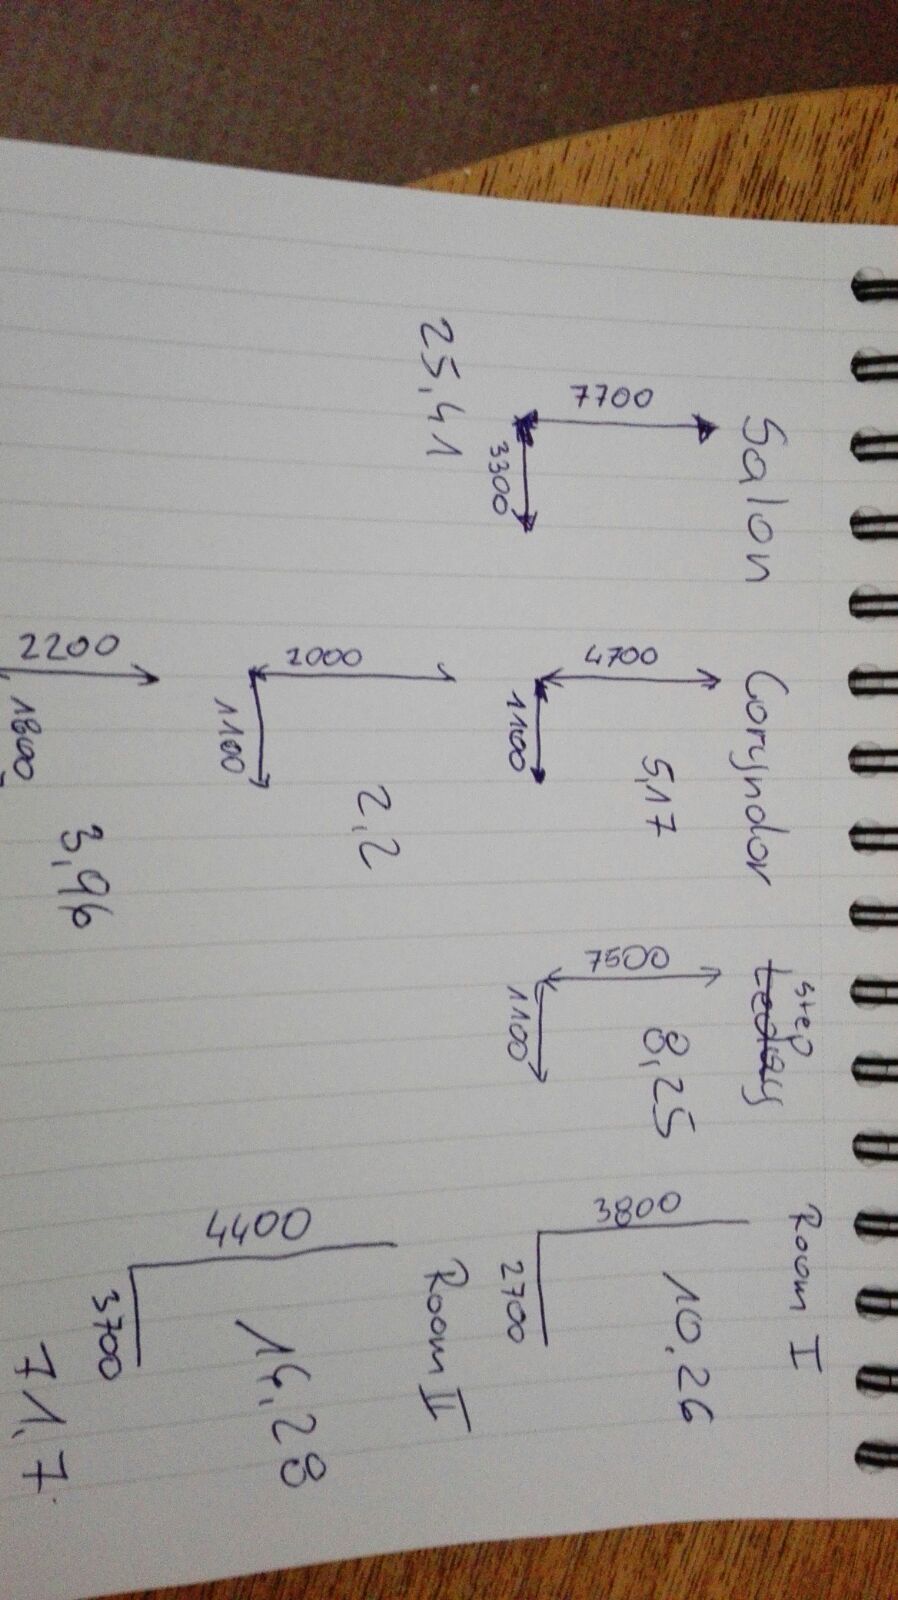 Salon
7700
3300
25,41
Coryndor
4700
5,17
1100
2000
2,2
1100
2200
3,96
1800
step
7500
8,25
1100
Room I
3800
10,26
2700
Room II
4400
16,28
3700
71,7